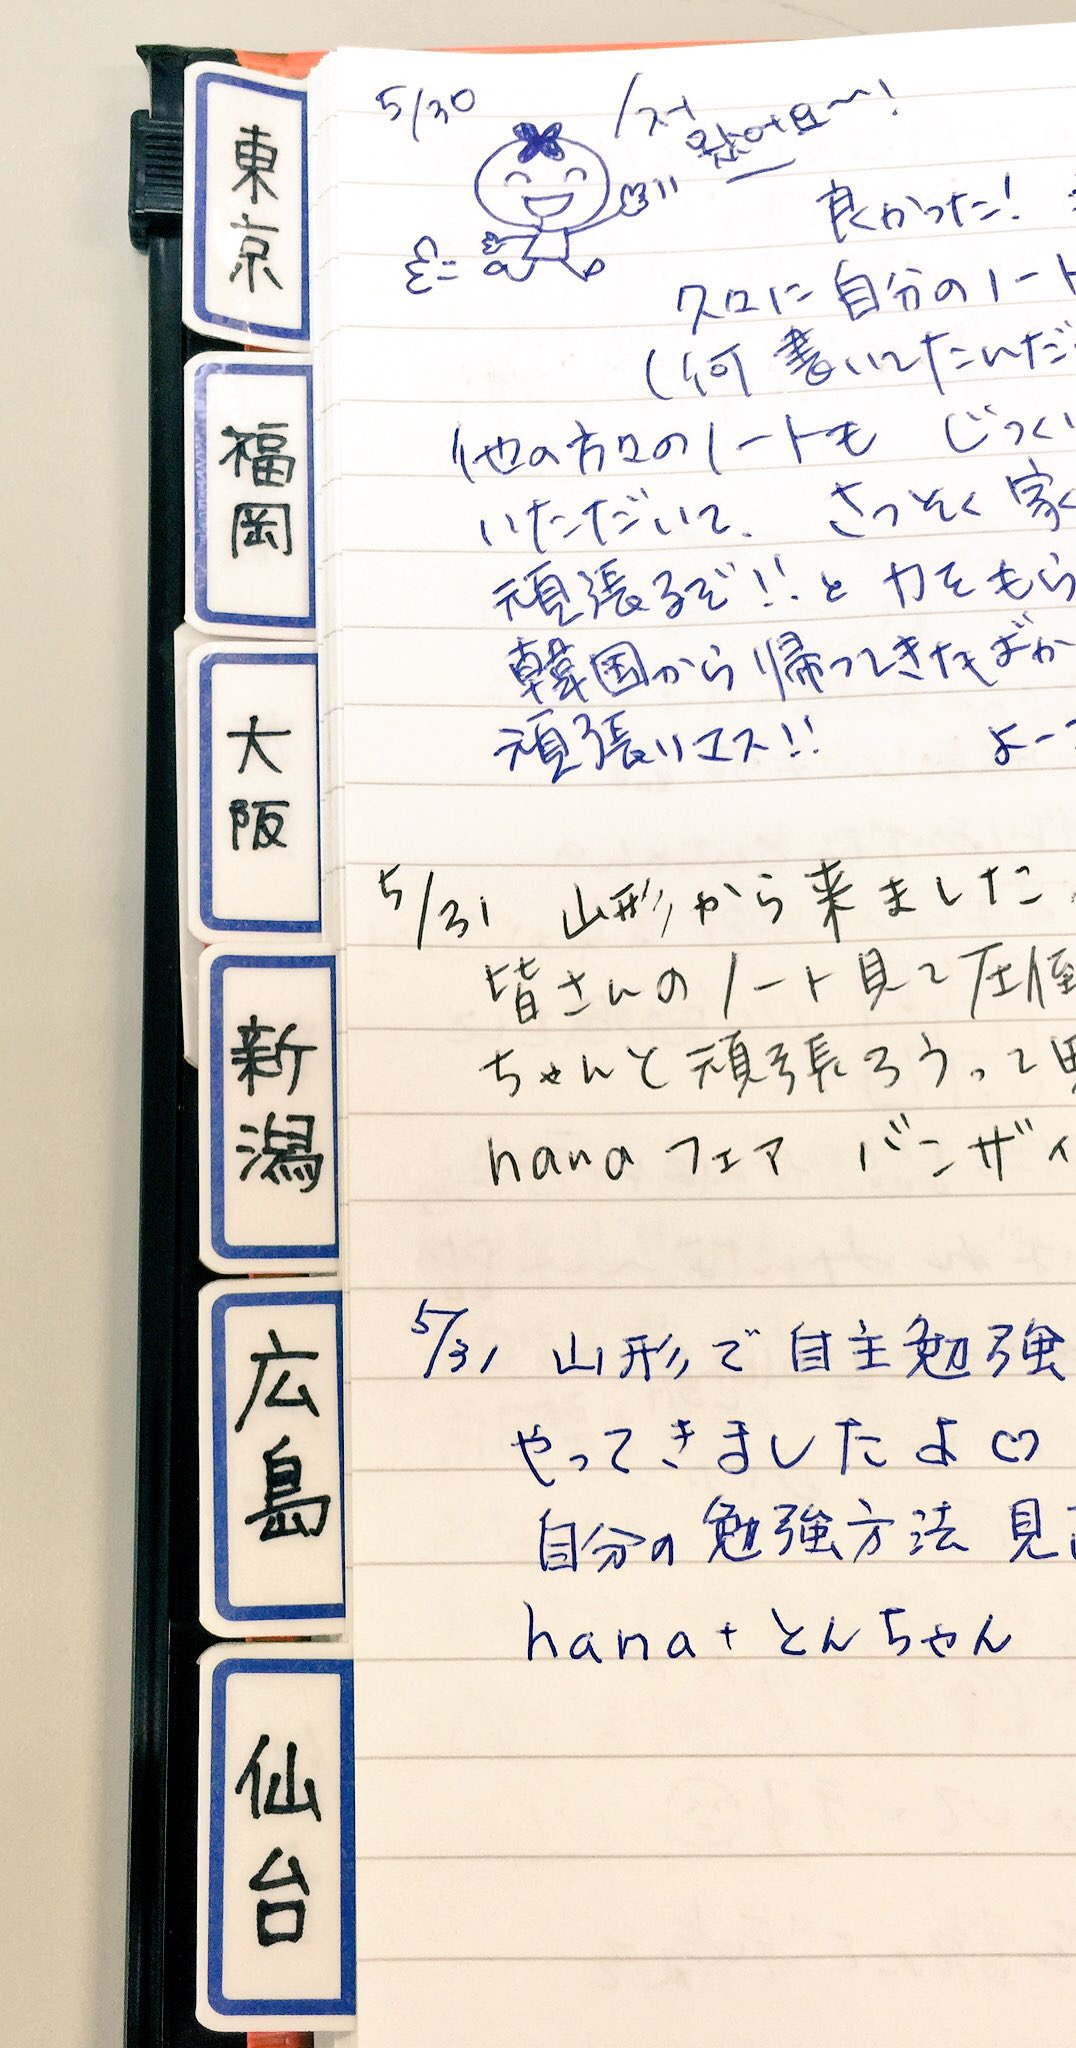 東京
福岡
大阪
新潟
広島
仙台
5/30
저
왔어요~!
良かった!
自分のノート
(何書いてたんだ
他の方々のノートも じっくり
いただいて、 さっそく 家
頑張るぞ!!と 力をもら
韓国から帰ってきたばか
頑張りマス!! よー
5/31 山形から来ました
皆さんのノート見て圧倒
ちゃんと頑張ろうって思
hanaフェア バンザイ
5/31 山形で自主勉強
やってきましたよ♡
自分の勉強方法 見
hana+とんちゃん